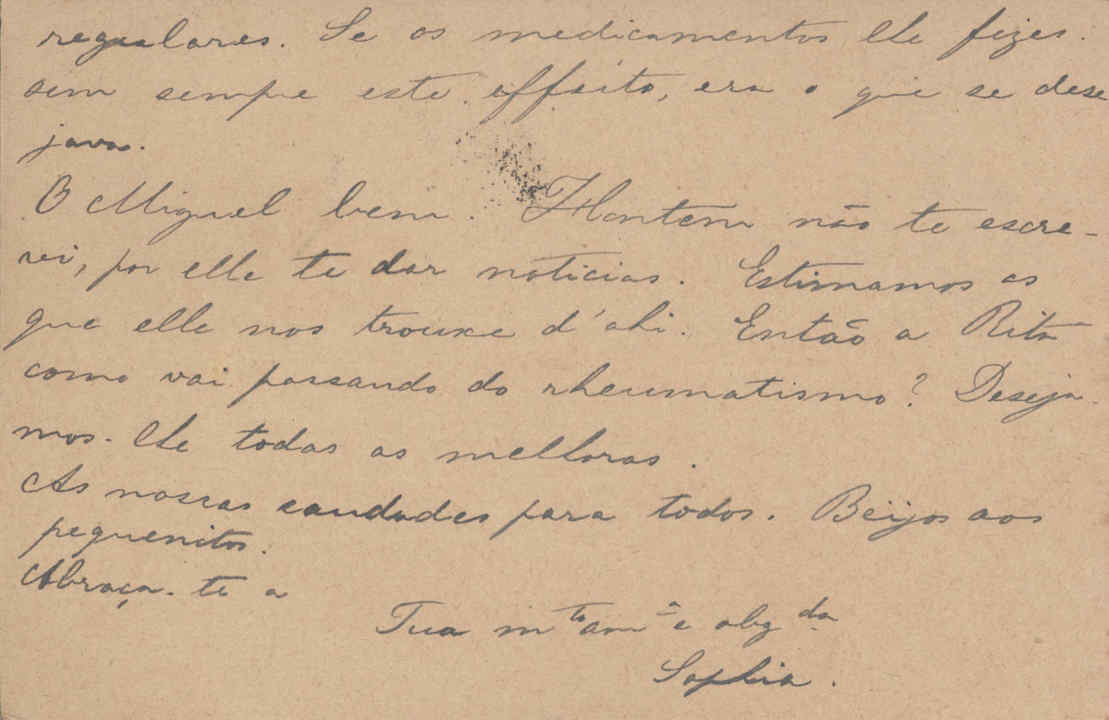 regulares. Se os medicamentos lhe fizes.
sem sempre este effeito, era o que se dese
java.
O Miguel bem. Hontem não te escre-
vi, por elle te dar noticias. Estimamos as
que elle nos trouxe d'ahi. Então a Rita
como vai passando do rheumatismo? Deseja-
mos-lhe todas as melhoras.
As nossas saudades para todos. Beijos aos
pequenitos.
Abraça-te a
Tua m.to am.a e obg.da
Sophia.